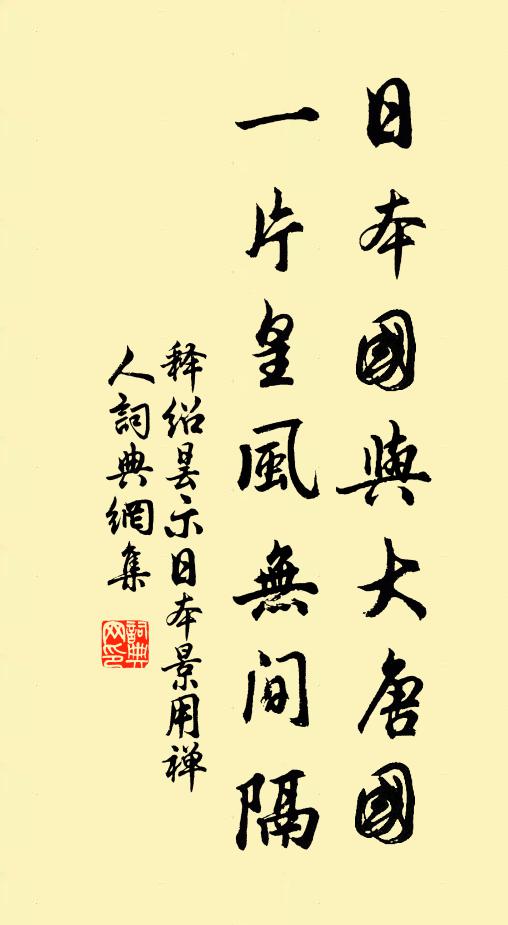 日本國與大唐國
一片皇風無间隔
释绍昙示日本景用禅
人詞典網集
詞典网印